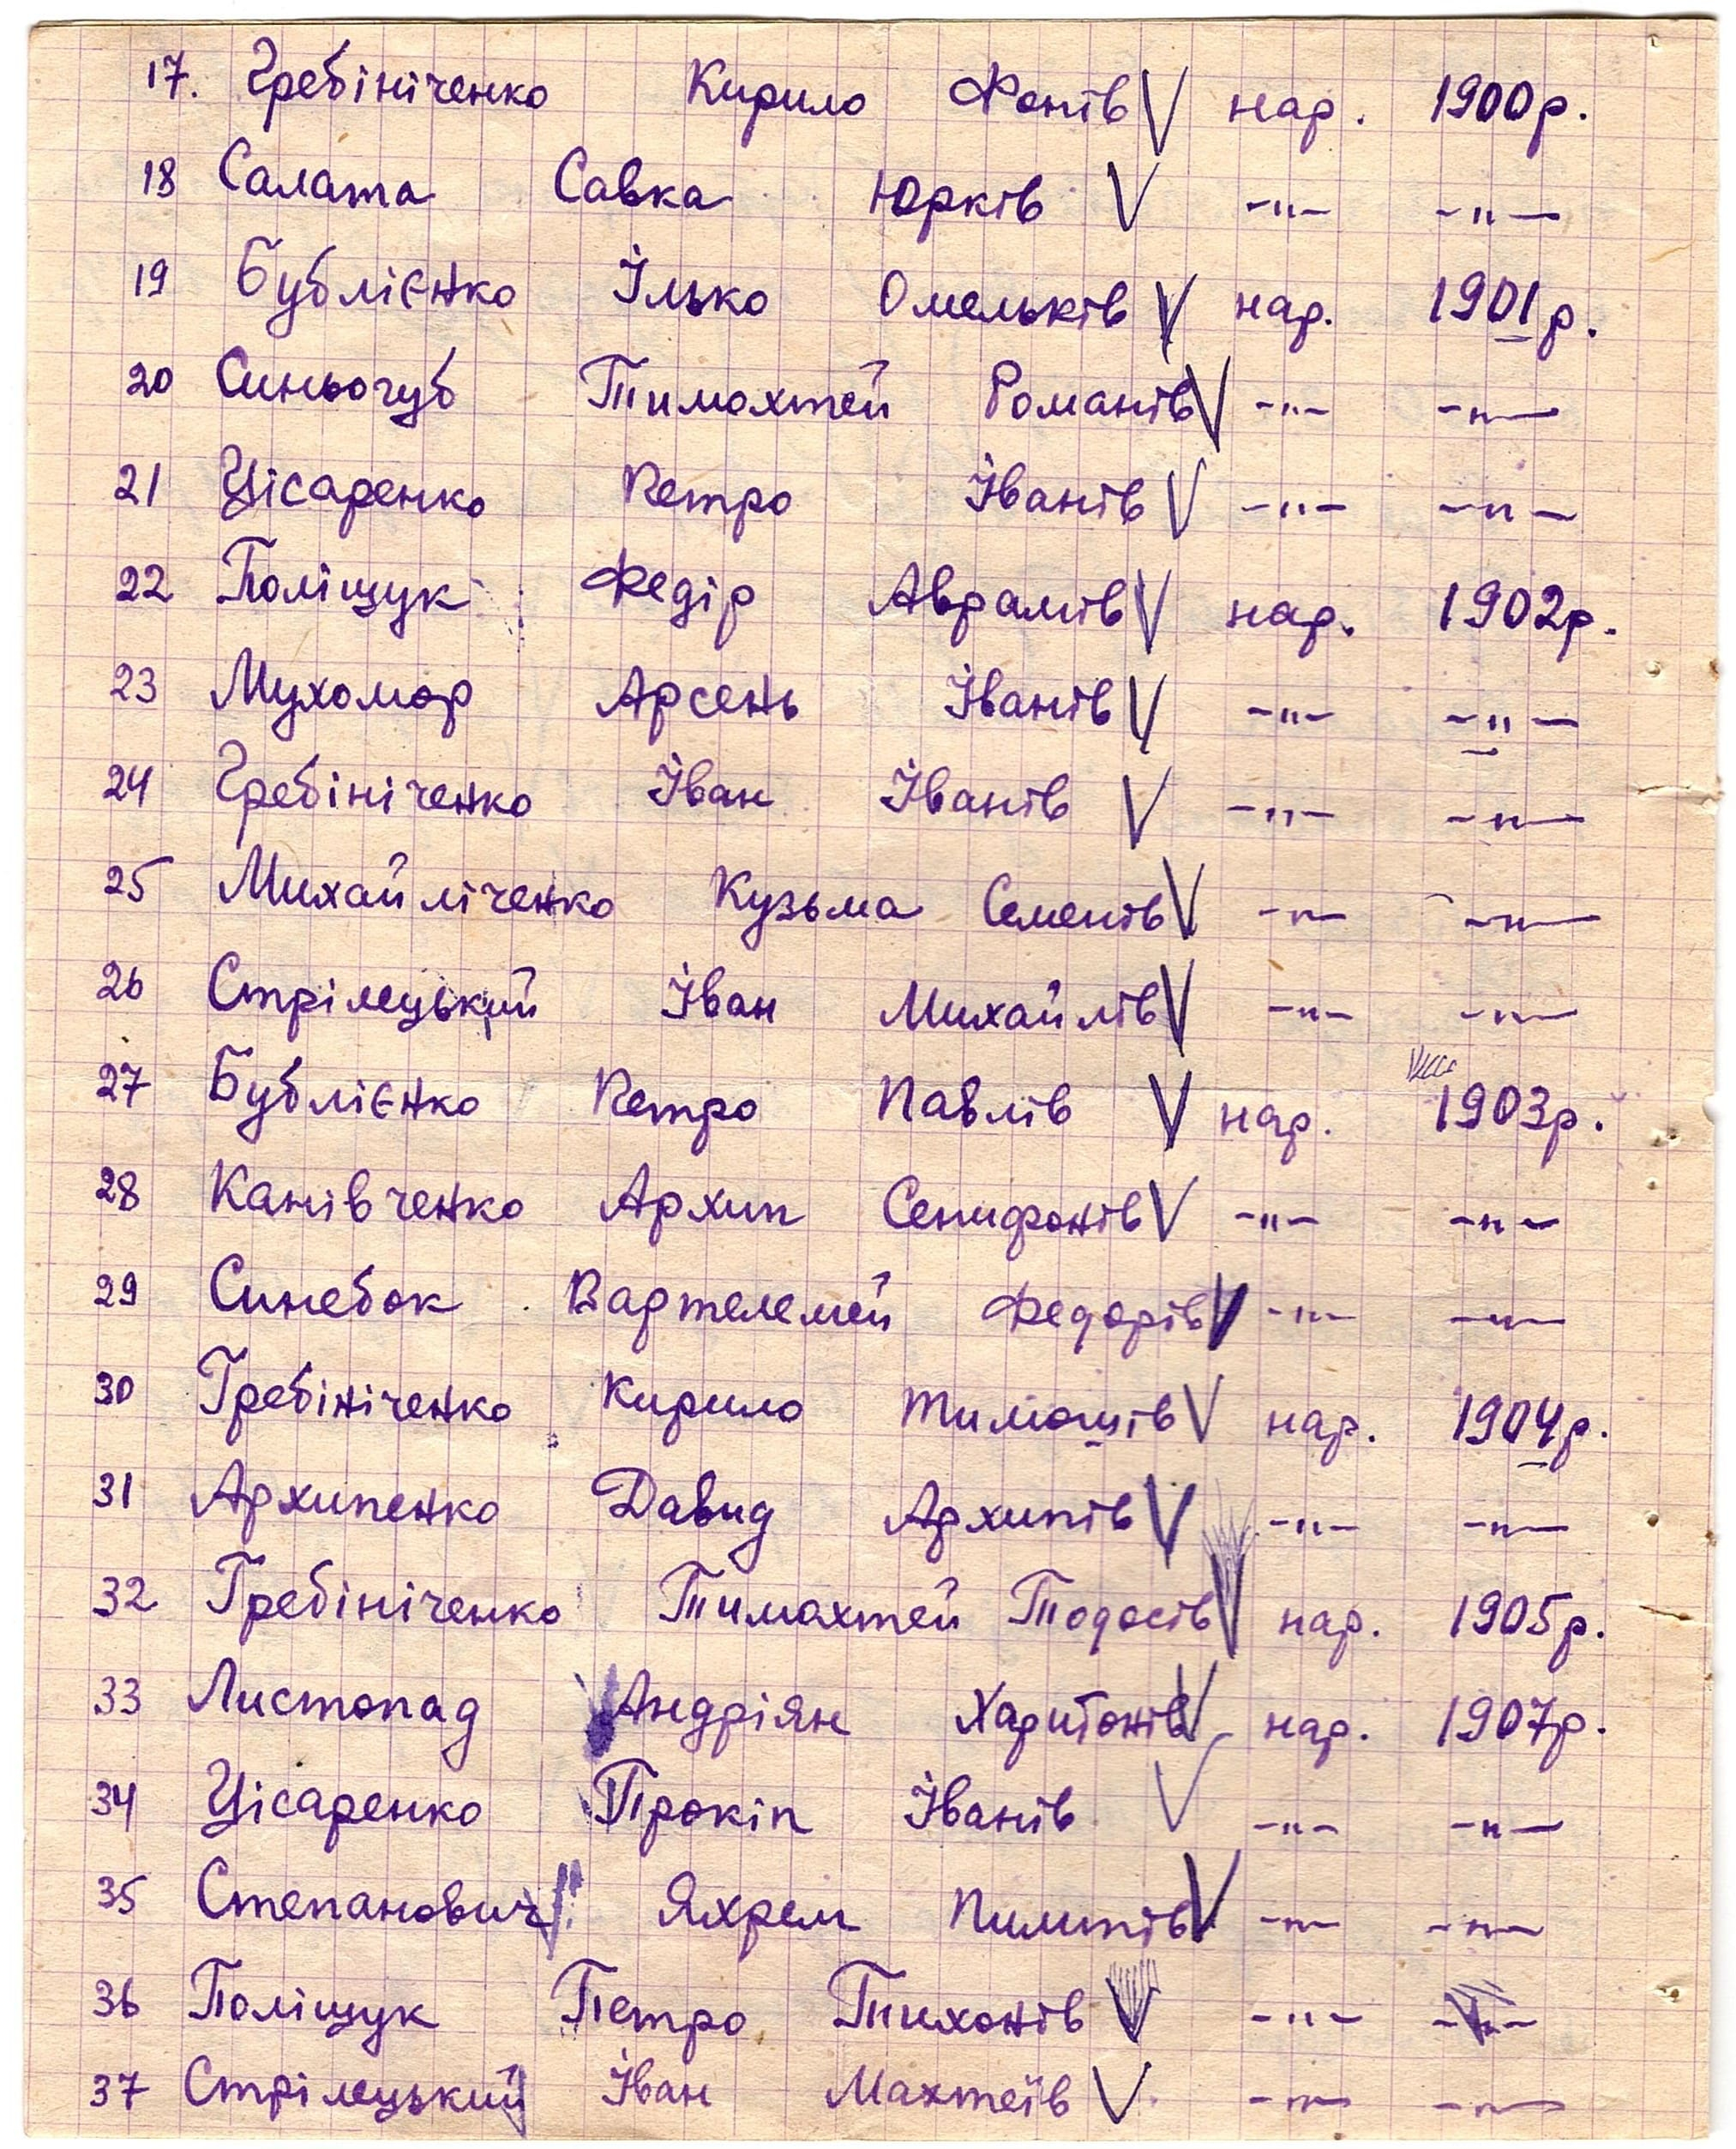 17. Гребініченко Кирило Фонів V нар. 1900р.
18 Салата Савка Юрків V -„- -„-
19 Бублієнко Ілько Омельків V нар. 1901р.
20 Синьогуб Тимохтей Романів V -„- -„-
21 Цісаренко Петро Іванів V -„- -„-
22 Поліщук Федір Аврамів V нар. 1902р.
23 Мухомор Арсень Іванів V -„- -„-
24 Гребініченко Іван Іванів V -„- -„-
25 Михайліченко Кузьма Семенів V -„- -„-
26 Стрілецький Іван Михайлів V -„- -„-
27 Бублієнко Петро Павлів V нар. 1903р.
28 Канівченко Архип Сенифонів V -„- -„-
29 Синебок Вартелемей Федорів V -„- -„-
30 Гребініченко Кирило Тимошів V нар. 1904р.
31 Архипенко Давид Архипів V -„- -„-
32 Гребініченко Тимохтей Тодосів V нар. 1905р.
33 Листопад Андріян Харитонів V нар. 1907р.
34 Цісаренко Прокіп Іванів V -„- -„-
35 Степанович Яхрем Пилипів V -„- -„-
36 Поліщук Петро Тихонів V -„- -„-
37 Стрілецький Іван Махтеїв V -„- -„-